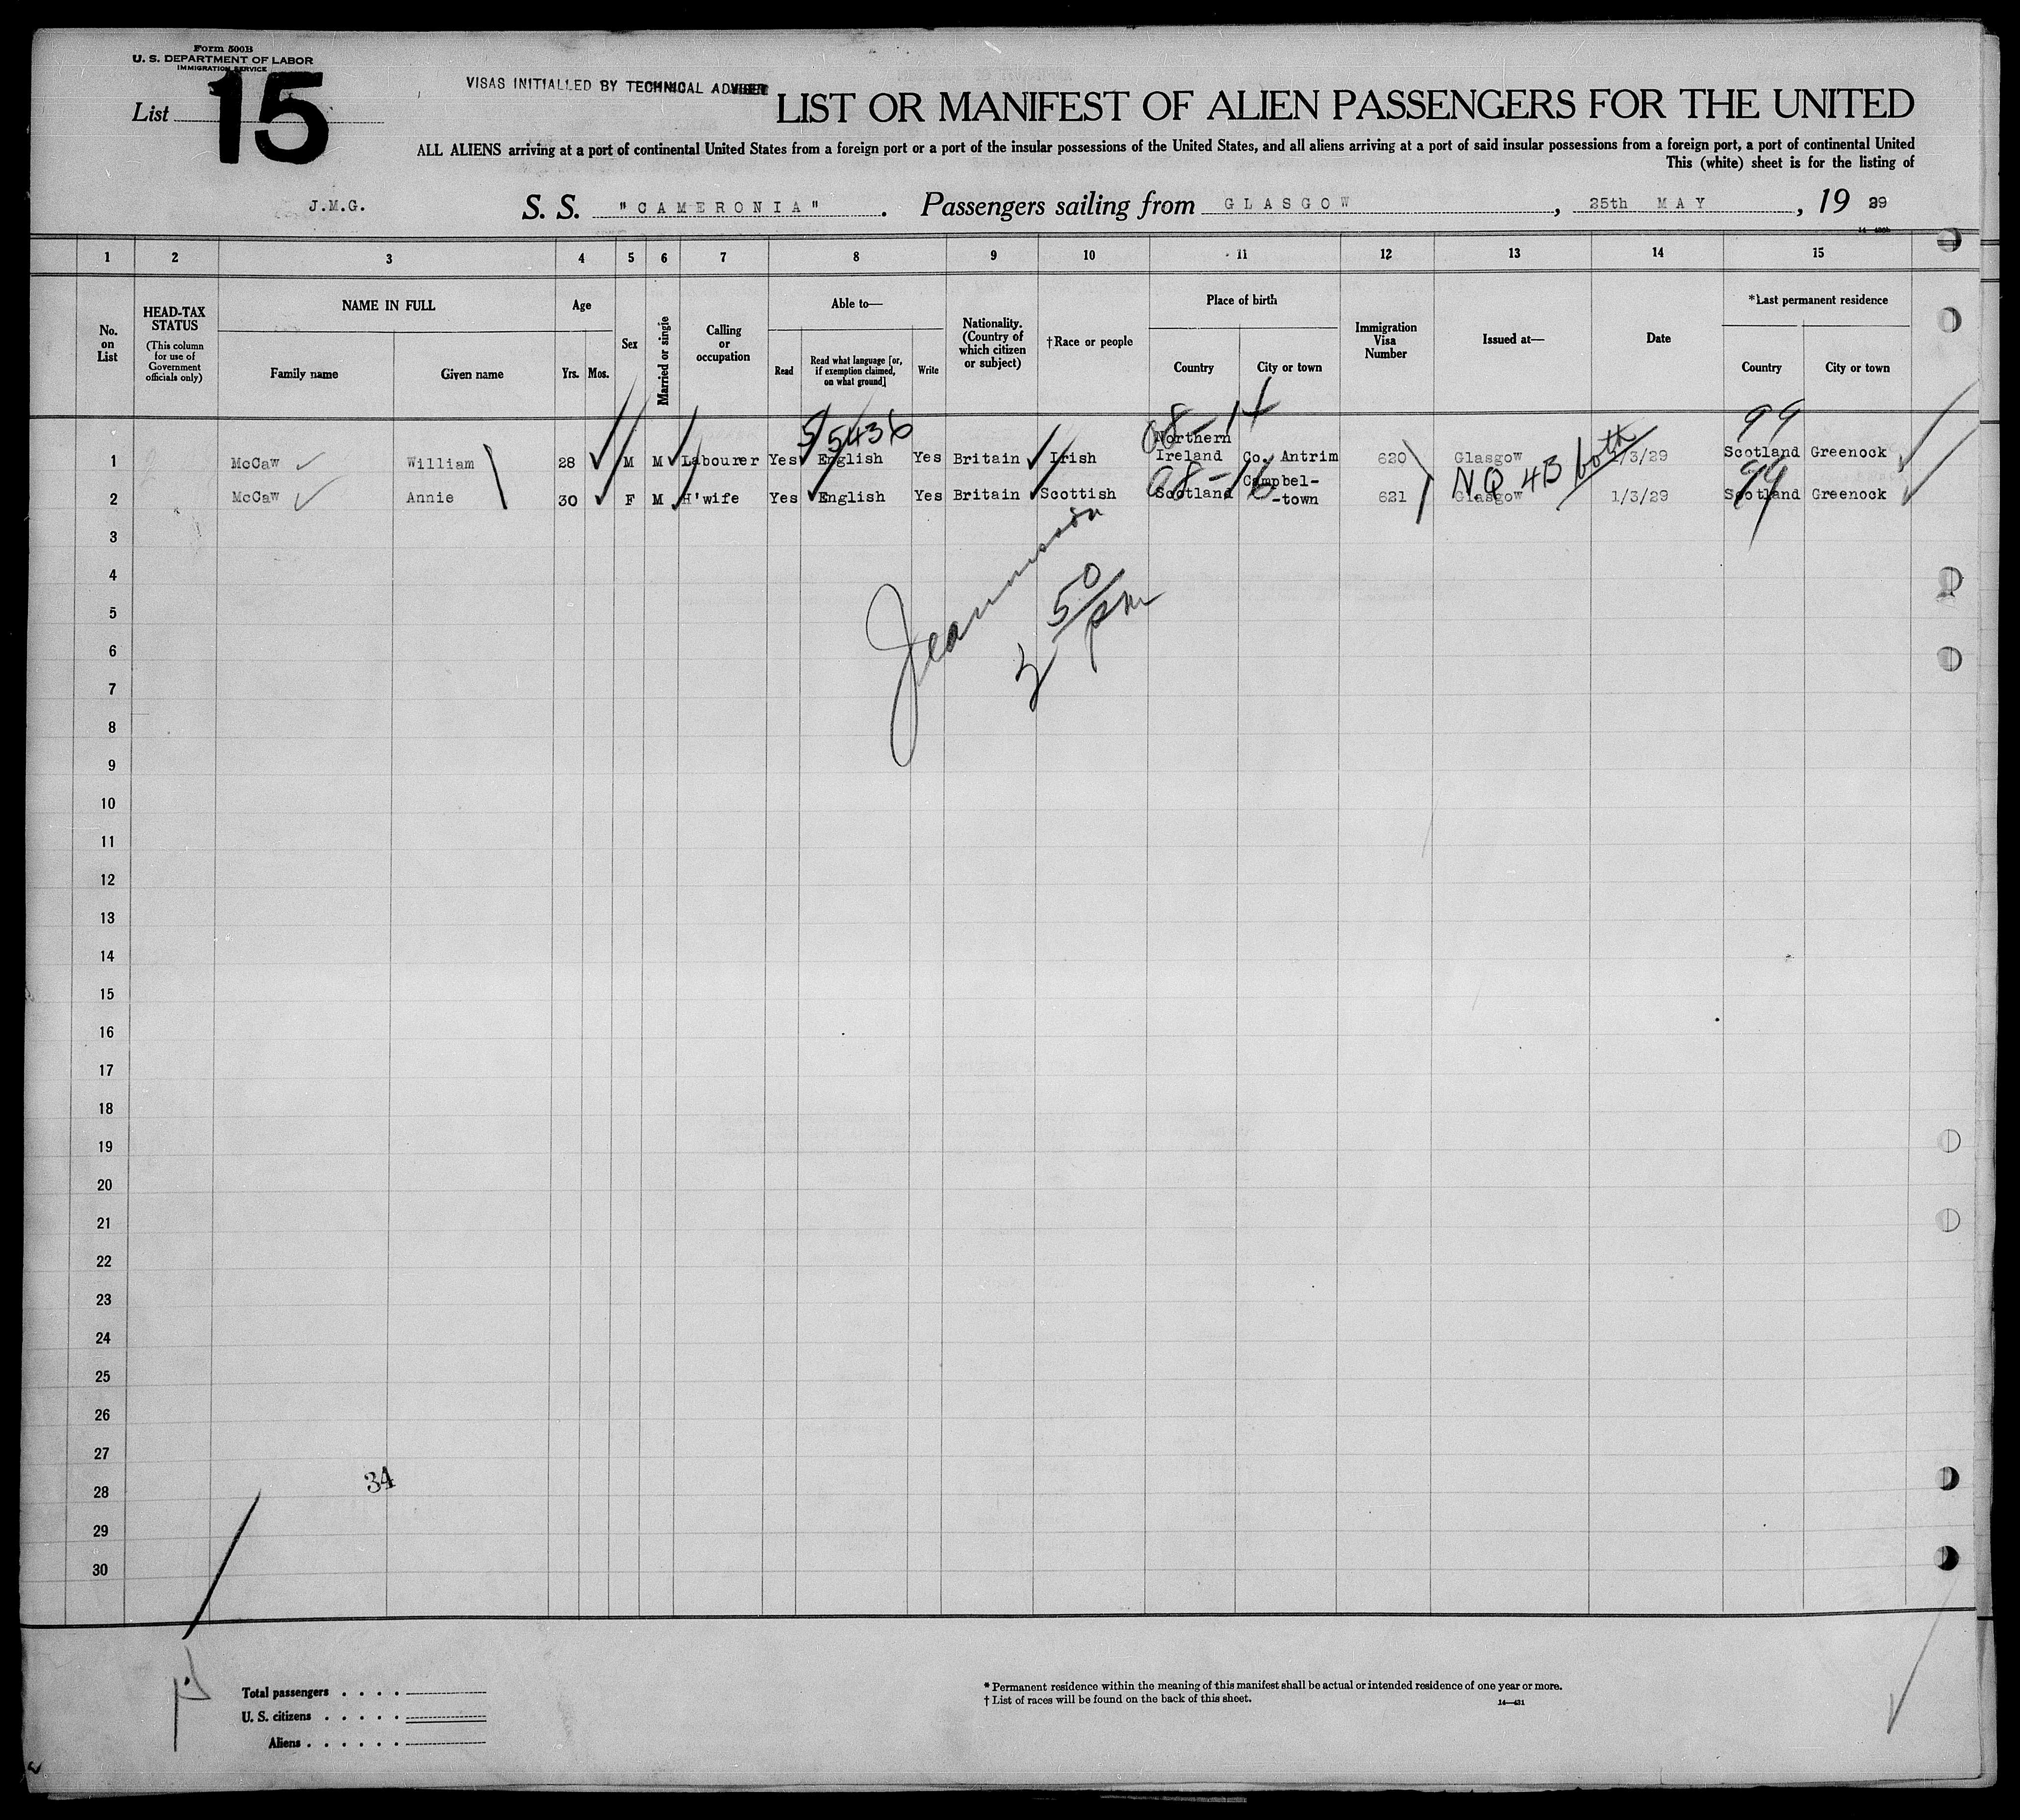 Form 500B
U. S. DEPARTMENT OF LABOR
IMMIGRATION SERVICE
List 15
VISAS INITIALLED BY TECHNICAL ADVISER
LIST OR MANIFEST OF ALIEN PASSENGERS FOR THE UNITED
ALL ALIENS arriving at a port of continental United States from a foreign port or a port of the insular possessions of the United States, and all aliens arriving at a port of said insular possessions from a foreign port, a port of continental United
This (white) sheet is for the listing of
J.M.G. S. S. "CAMERONIA". Passengers sailing from GLASGOW, 25th MAY, 19 29
1 2 3 4 5 6 7 8 9 10 11 12 13 14 15
No. on List
HEAD-TAX STATUS
(This column for use of Government officials only)
NAME IN FULL
Family name Given name
Age
Yrs. Mos.
Sex
Married or single
Calling or occupation
Able to—
Read
Read what language [or, if exemption claimed, on what ground]
Write
Nationality. (Country of which citizen or subject)
†Race or people
Place of birth
Country City or town
Immigration Visa Number
Issued at—
Date
*Last permanent residence
Country City or town
5/5436 08-14 99
1 McCaw William 28 M M Labourer Yes English Yes Britain Irish Northern Ireland Co. Antrim 620 Glasgow 1/3/29 Scotland Greenock
NQ 4B both
08-16 99
2 McCaw Annie 30 F M H'wife Yes English Yes Britain Scottish Scotland Campbel--town 621 Glasgow 1/3/29 Scotland Greenock
3
4
5
50
pm
6
7
8
9
10
11
12
13
14
15
16
17
18
19
20
21
22
23
24
25
26
27
34
28
29
30
Total passengers . . . .
U. S. citizens . . . . .
Aliens . . . . . .
* Permanent residence within the meaning of this manifest shall be actual or intended residence of one year or more.
† List of races will be found on the back of this sheet.
14—431